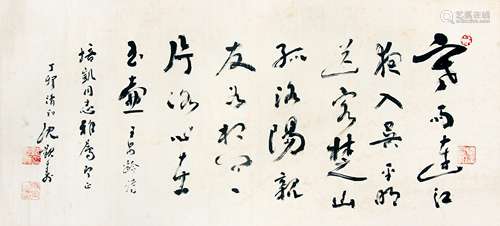 寒雨連江
夜入吴平明
送客楚山
孤洛陽親
友如相問一
片冰心在
玉壺 王昌齡詩
培凱同志雅屬即正
丁卯清和沈觀壽